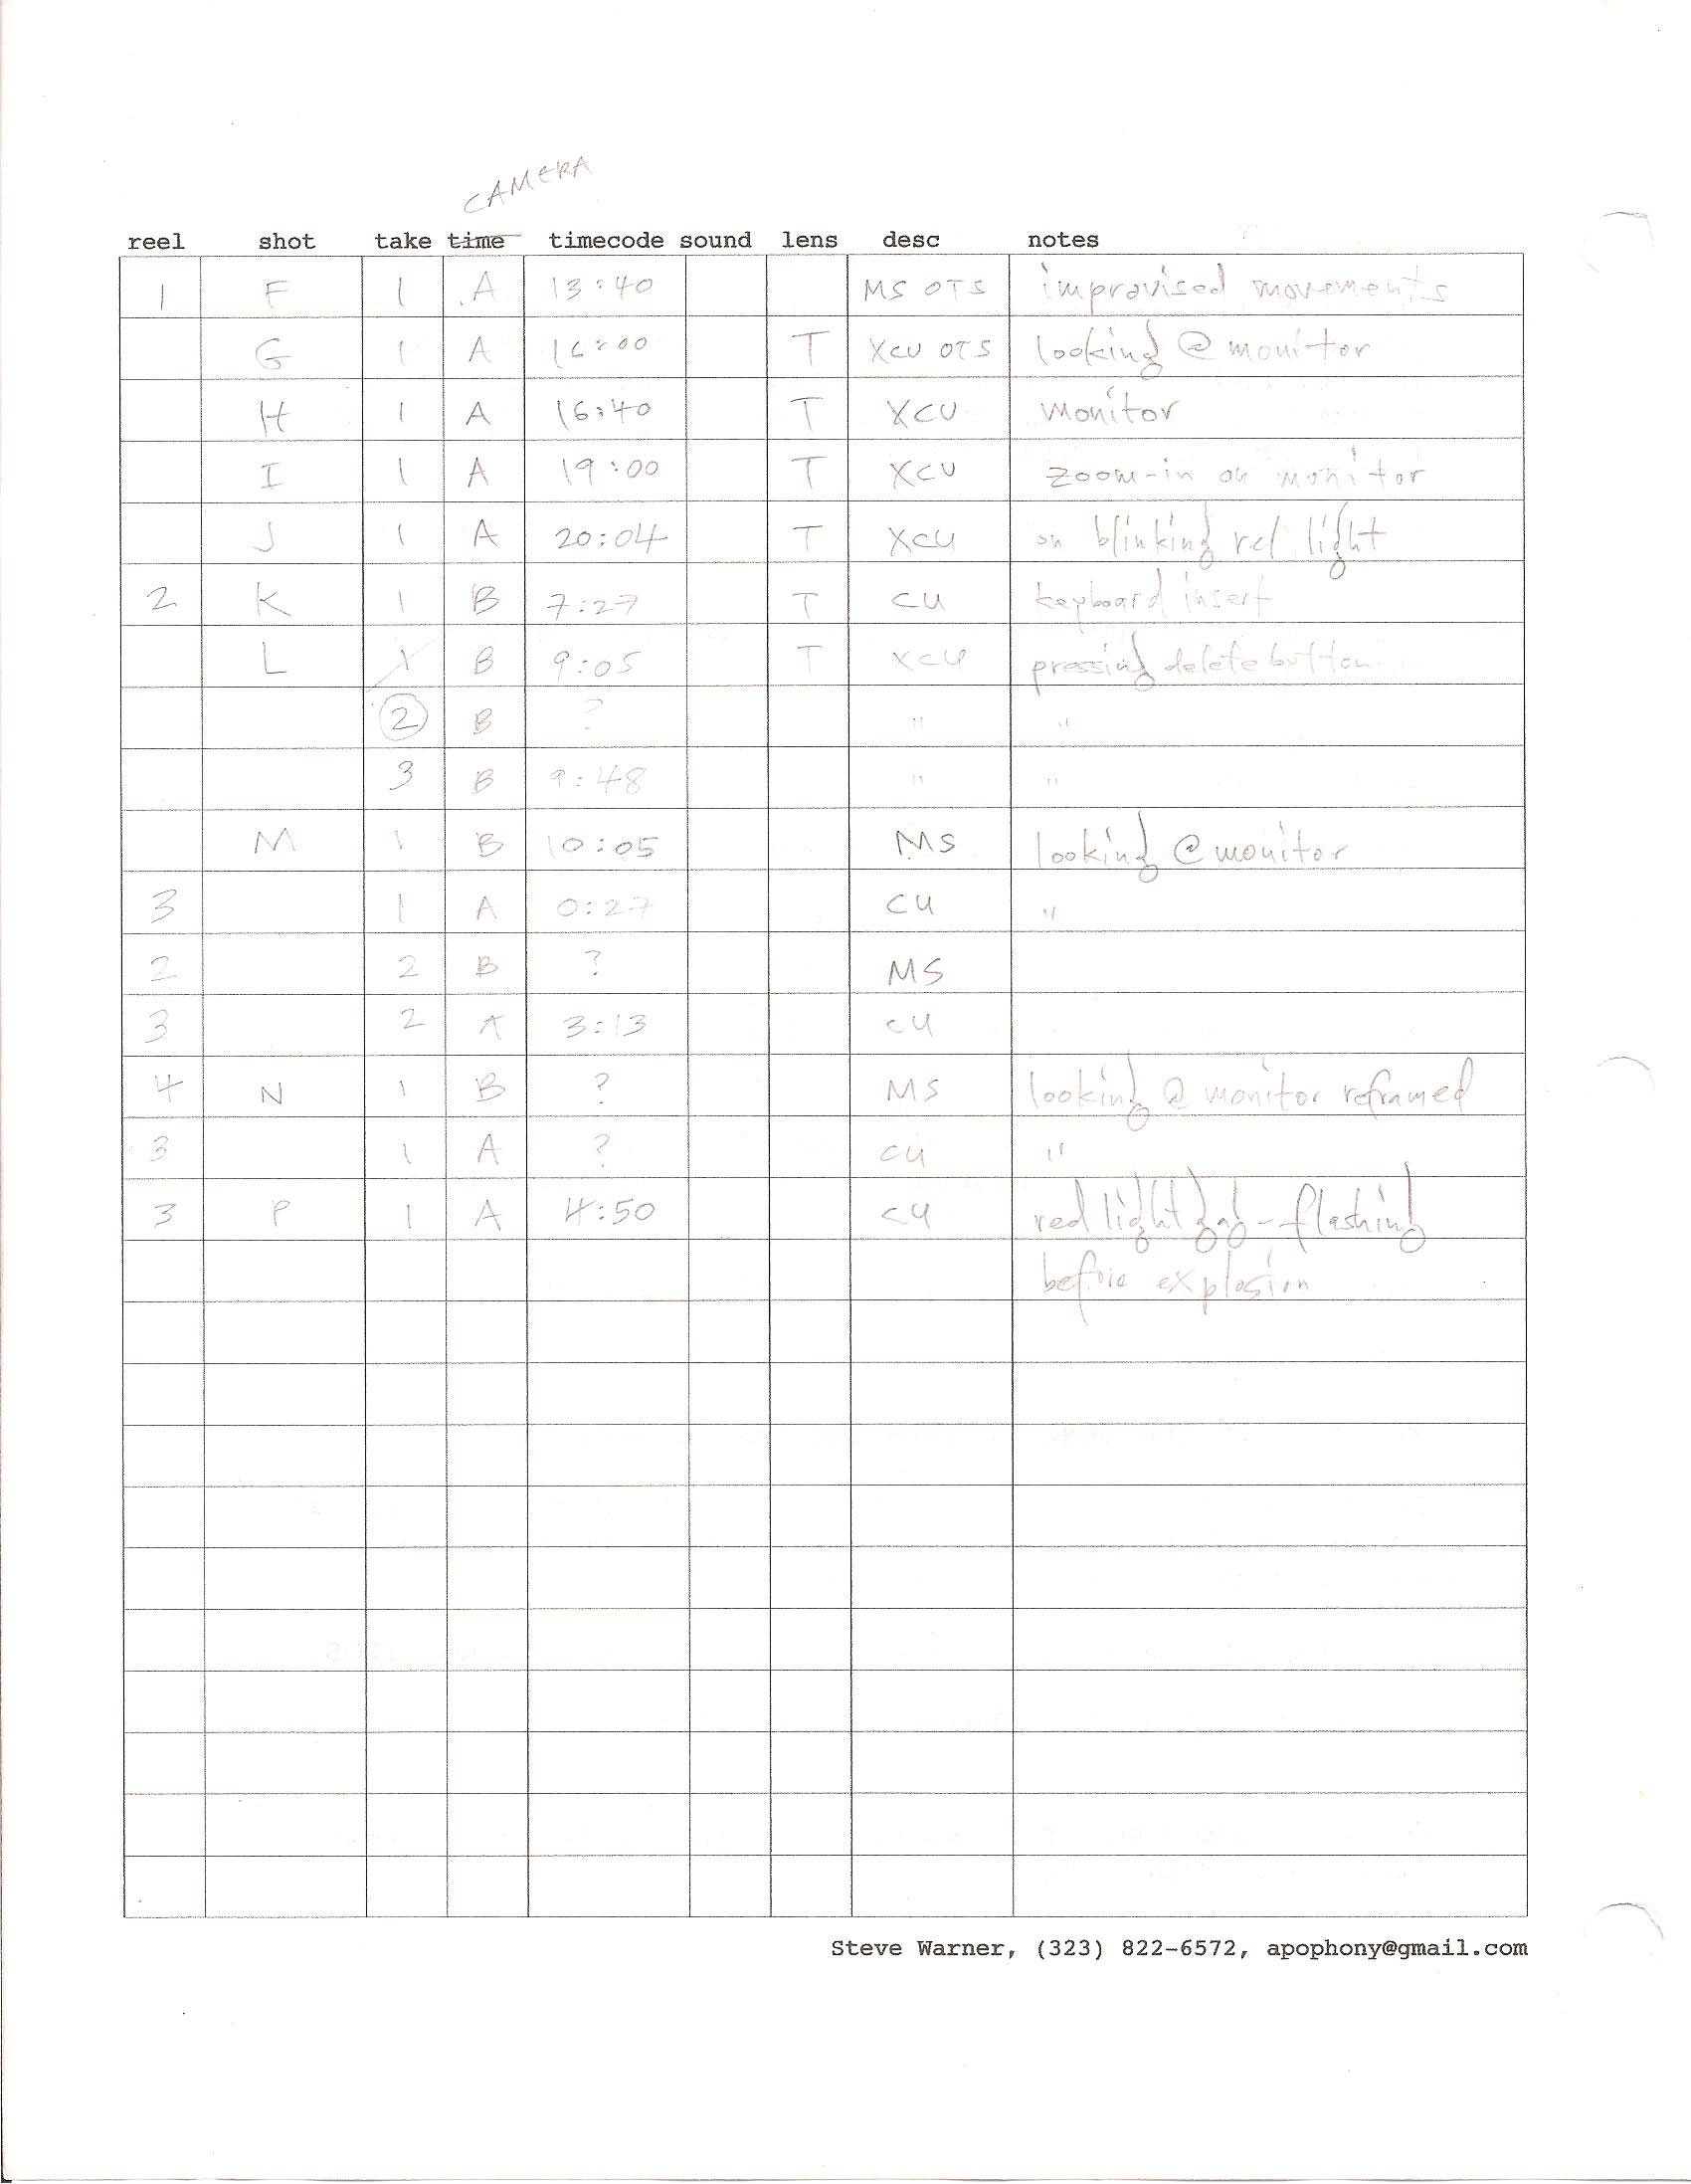 CAMERA
reel shot take time timecode sound lens desc notes
1 F 1 A 13:40 MS OTS improvised movements
G 1 A 16:00 T XCU OTS looking @ monitor
H 1 A 16:40 T XCU monitor
I 1 A 19:00 T XCU zoom-in on monitor
J 1 A 20:04 T XCU on blinking red light
2 K 1 B 7:27 T CU keyboard insert
L 1 B 9:05 T XCU pressing delete button
2 B ? " "
3 B 9:48 " "
M 1 B 10:05 MS looking @ monitor
3 1 A 0:27 CU "
2 2 B ? MS
3 2 A 3:13 CU
4 N 1 B ? MS looking @ monitor reframed
3 1 A ? CU "
3 P 1 A 4:50 CU red light gag - flashing
before explosion
Steve Warner, (323) 822-6572, apophony@gmail.com